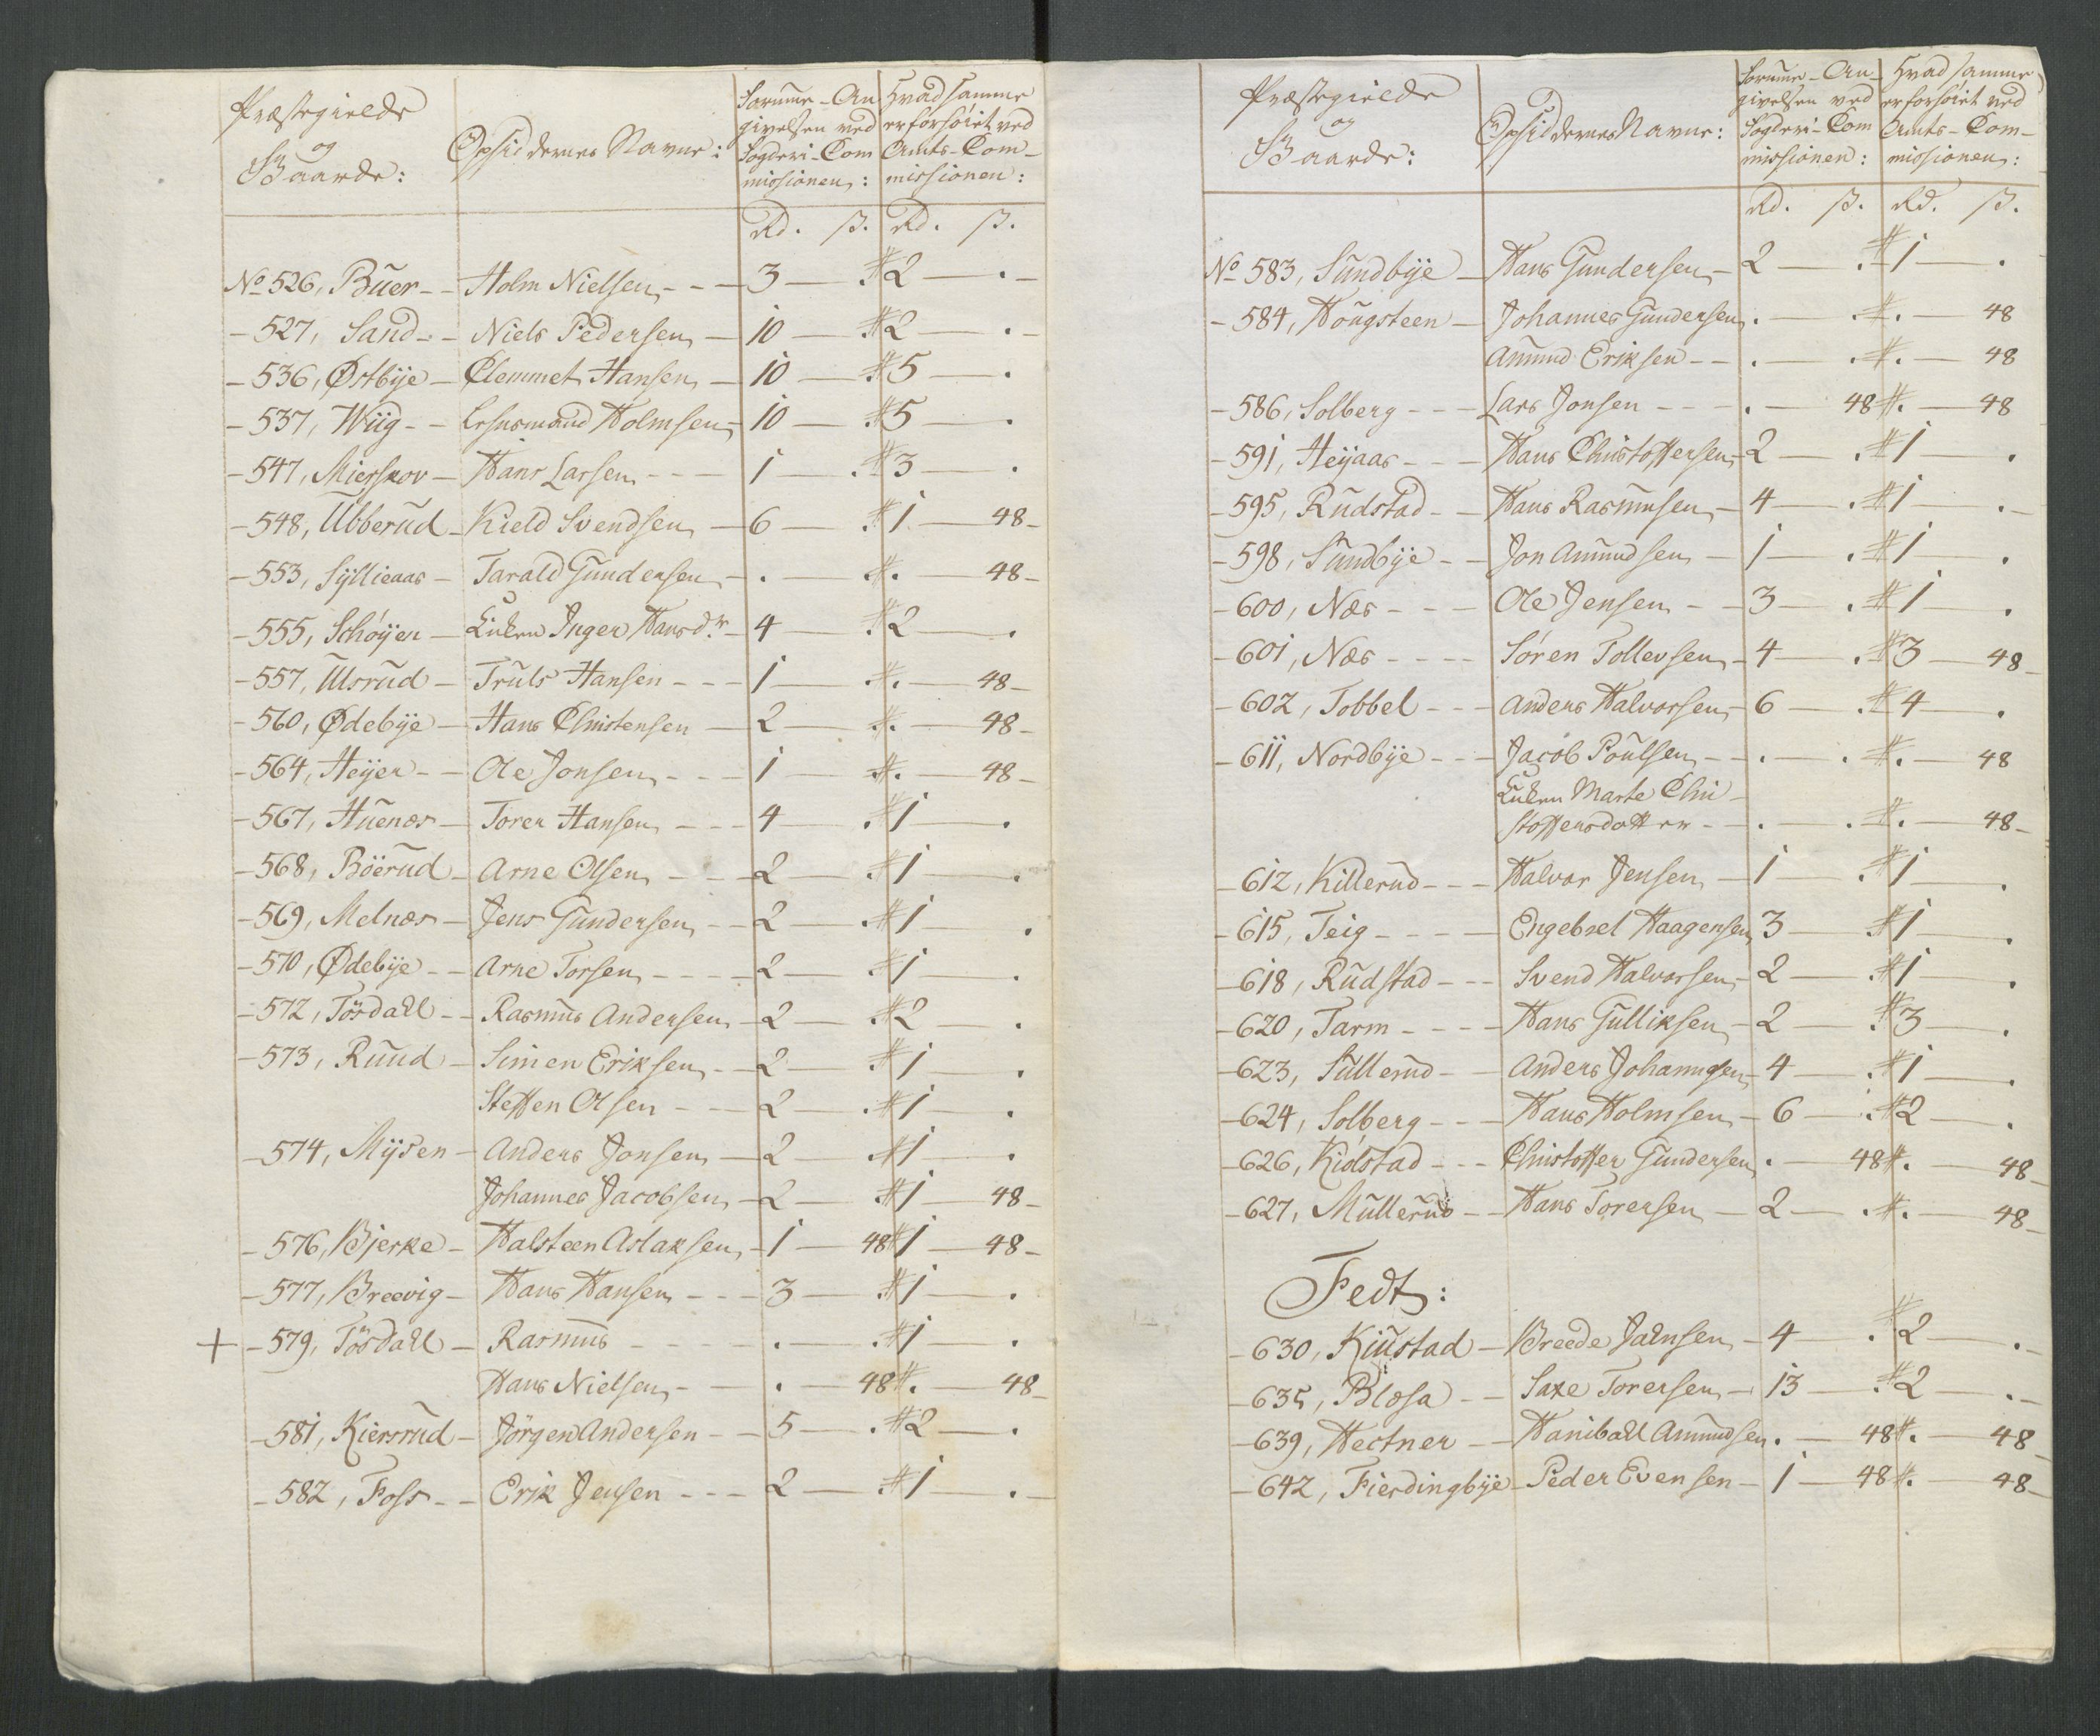 Præstegielde
og
Gaarde:
Opsiddernes Navne:
Summe-An
givelsen ved
Fogderi-Com
missionen:
Hvad samme
er forhøiet ved
Amts-Com-
missionen:
Rd. ß. Rd. ß.
No 526, Buer-- Holm Nielsen--- 3 — . # 2 — . -
- 527, Sand-- Niels Pedersen — 10 — . # 2 — . -
- 536, Østbÿe — Clemmet Hansen — 10 — . # 5 — .
- 537, Wiig-- Lehnsmand Holmsen, 10 — . # 5 — .
- 547, Mierskov — Hans Larsen --- 1 — . # 3 — .
- 548, Ubberud - Kield Svendsen — 6 — . # 1 — 48-
- 553, Sÿllieaas - Tarald Gundersen - . — . # . — 48-
- 555, Schøÿen — Enken Inger Hansd.r - 4 — . # 2 — .
- 557, Ulsrud - Truls Hansen --- 1 — . # . — 48-
- 560, Ødebÿe — Hans Christensen — 2 — . # . — 48-
- 564, Heÿer-- Ole Jonsen --- 1 — . # . — 48-
- 567, Huenæs — Torer Hansen --- 4 — . # 1 — .
- 568, Böerud - Arne Olsen --- 2 — . # 1 — .
- 569, Melnæs — Jens Gundersen -- 2 — . # 1 — .
- 570, Ødebÿe -- Arne Torsen ---- 2 — . # 1 — .
- 572, Tösdall -- Rasmus Andersen - 2 — . # 2 — .
- 573, Ruud - Simen Eriksen -- 2 — . # 1 — .
Steffen Olsen --- 2 — . # 1 — .
- 574, Mÿsen - Anders Jonsen — 2 — . # 1 — .
Johannes Jacobsen - 2 — . # 1 — 48-
- 576, Bjerke - Halsteen Aslaksen, - 1 — 48 # 1 — 48-
- 577, Breevig - Hans Hansen --- 3 — . # 1 — .
+ - 579, Tösdall - Rasmus ---- . — . # 1 — .
Hans Nielsen - — . — 48 # . — 48-
- 581, Kiersrud - Jörgen Andersen -- 5 — . # 2 — .
- 582, Foss -- Erik Jensen --- 2 — . # 1 — . -
Præstegielde
og
Gaarde:
Opsiddernes Navne:
Summe-An-
givelsen ved
Fogderi-Com
missionen:
Hvad samme
er forhøiet ved
Amts-Com-
missionen:
Rd. ß. Rd. ß.
No 583, Sundbÿe — Hans Gundersen - 2 — . # 1 — .
- 584, Hougsteen — Johannes Gundersen . — . # . — 48
Amund Eriksen -- . — . # . — 48
- 586, Solberg --- Lars Jonsen --- . — 48 # . — 48
- 591, Heÿaas --- Hans Christoffersen, 2 — . # 1 — .
- 595, Rudstad -- Hans Rasmusen - 4 — . # 1 — . -
- 598, Sundbÿe -- Jon Amundsen - 1 — . # 1 — .
- 600, Næs --- Ole Jensen -- 3 — . # 1 — .
- 601, Næs ---- Sören Tollevsen - 4 — . # 3 — 48-
- 602, Tobbel --- Anders Halvorsen - 6 — . # 4 — .
- 611, Nordbÿe --- Jacob Poulsen -- . — . # . — 48
Enken Marte Chri-
stoffersdatter -- . — . # . — 48-
- 612, Killerud --- Halvor Jensen - 1 — . # 1 — .
- 615, Teig ---- Engebret Haagensen 3 — # 1 — .
- 618, Rudstad --- Svend Halvorsen - 2 — . # 1 — .
- 620, Tarm ---- Hans Gulliksen - 2 — . # 3 — .
- 623, Sullerud -- Anders Johannesen - 4 — . # 1 — .
- 624, Solberg --- Hans Holmsen - 6 — . # 2 — .
- 626, Kiølstad --- Christoffer Gundersen . — 48 # . — 48-
- 627, Mullerud -- Hans Torersen - 2 — . # . — 48-
Fedt:
- 630, Kiustad — Breede Jahnsen - 4 . # 2 — . -
- 635, Blæsa -- Saxe Torersen - 13 — . # 2 — . -
- 639, Hectner -- Haniball Amundsen . — 48 # . — 48
- 642, Fierdingbÿe - Peder Evensen - 1 — 48 # . — 48-